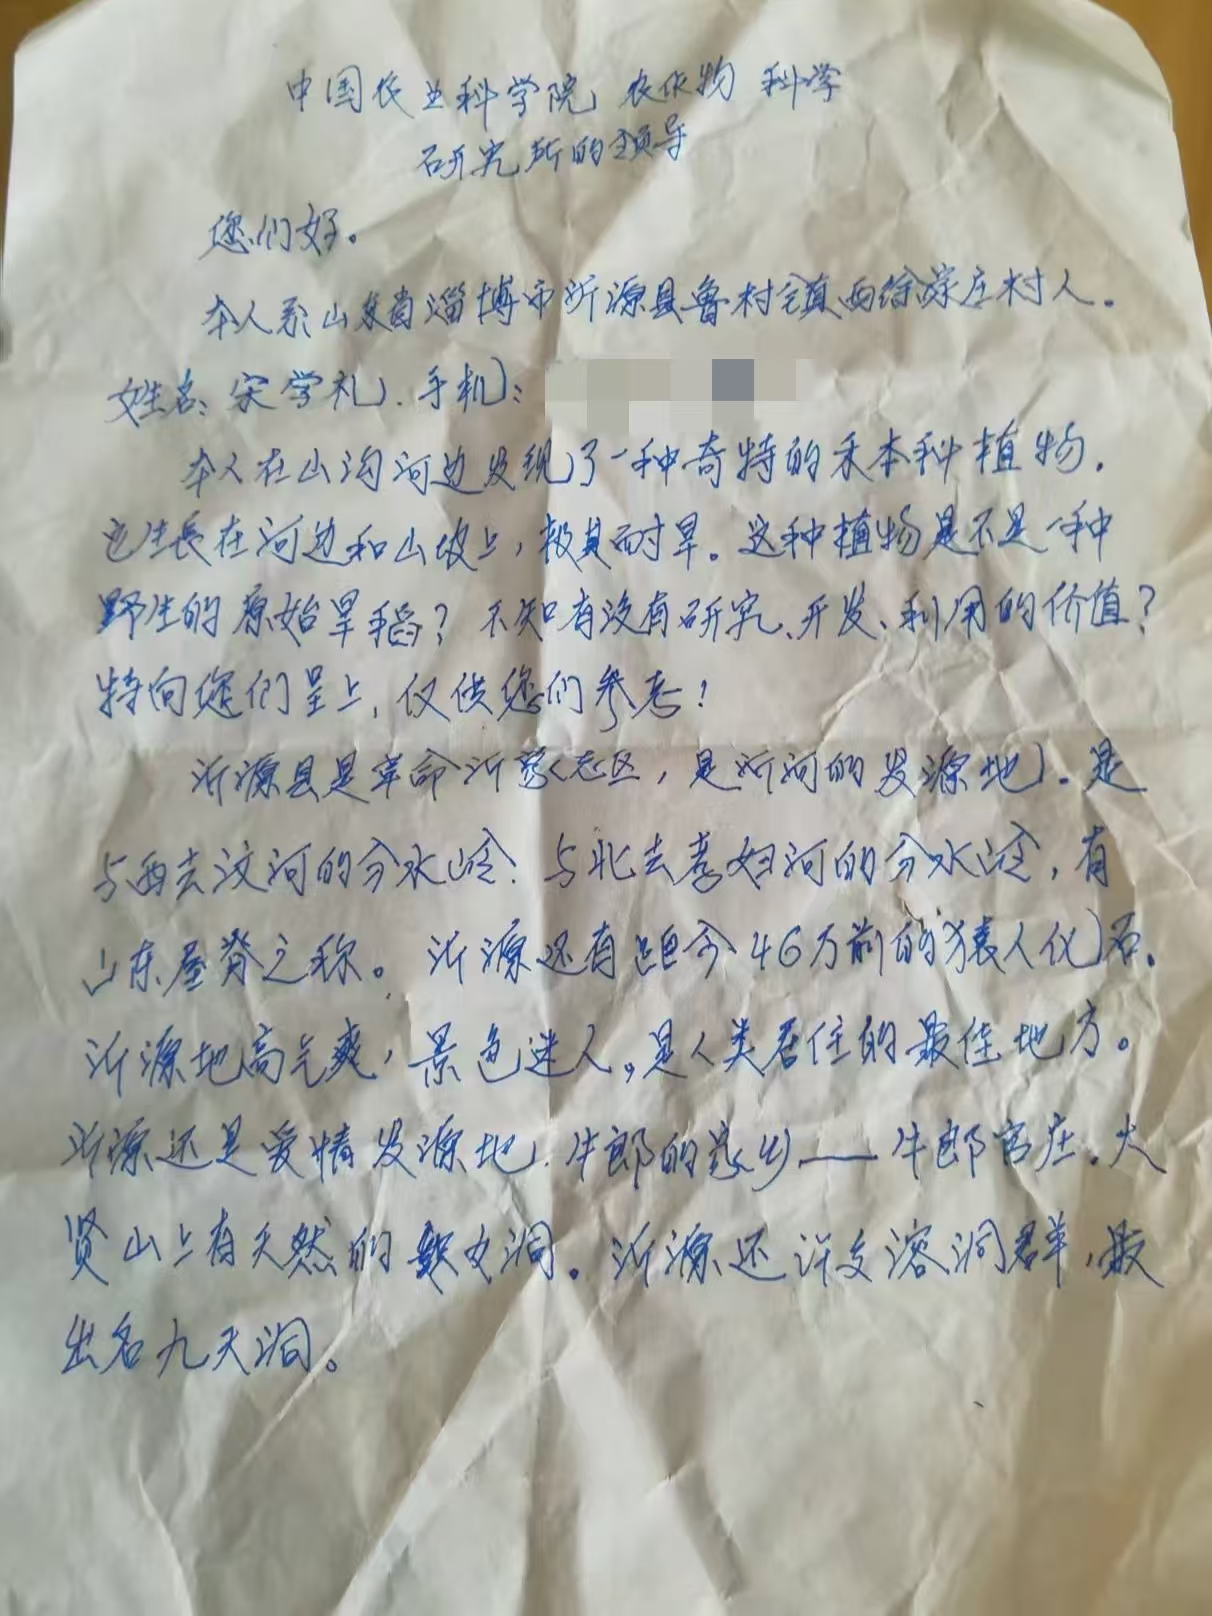 中国农业科学院 农作物 科学
研究所的领导
您们好。
本人系山东省淄博市沂源县鲁村镇西徐家庄村人.
姓名:宋学礼.手机:
本人在山沟河边发现了一种奇特的禾本科植物.
它生長在河边和山坡上,极其耐旱。这种植物是不是一种
野生的原始旱稻?不知有没有研究、开发、利用的价值?
特向您们呈上,仅供您们参考!
沂源县是革命沂蒙老区,是沂河的发源地.是
与西去汶河的分水岭.与北去孝妇河的分水岭,有
山东屋脊之称。沂源还有距今46万前的猿人化石.
沂源地高气爽,景色迷人。是人类居住的最佳地方。
沂源还是爱情发源地.牛郎的家乡——牛郎官庄.大
贤山上有天然的织女洞。沂源还许多溶洞群,最
出名九天洞。